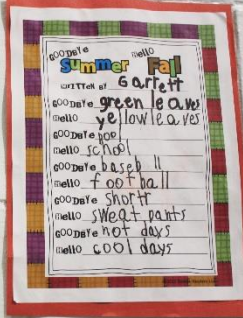 GOODBYE Hello
Summer Fall
WRITTEN BY Garrett
GOODBYE green leaves
Hello yellow leaves
GOODBYE pool
Hello school
GOODBYE baseb ll
Hello football
GOODBYE shortr
Hello sweat pants
GOODBYE hot days
Hello cool days